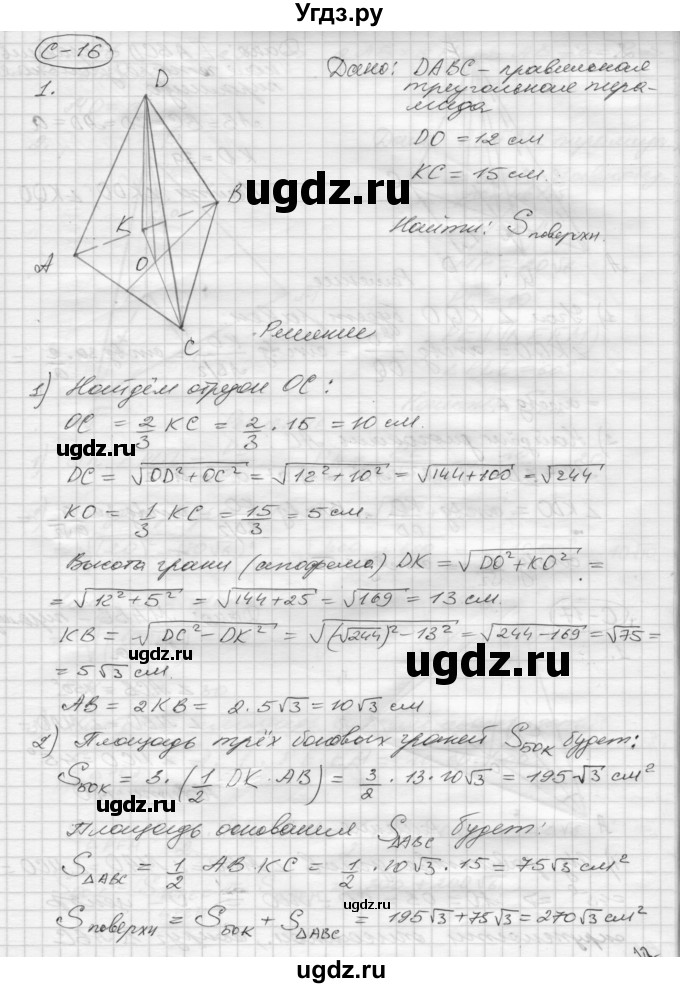 Угдз.ру
С-16
1.
Дано: DABC - правильная
треугольная пира-
мида
DO = 12 см
KC = 15 см.
Найти: Sповерхн.
D
B
K
A
O
C
ugdz.ru
Решение
1) Найдём отрезок OC:
OC = 2/3 KC = 2/3 · 15 = 10 см.
ugdz.ru
DC = √(OD² + OC²) = √(12² + 10²) = √(144+100) = √244
KO = 1/3 KC = 15/3 = 5 см
Высота грани (апофема) DK = √(DO² + KO²) =
= √(12² + 5²) = √(144 + 25) = √169 = 13 см.
KB = √(DC² - DK²) = √((√244)² - 13²) = √(244 - 169) = √75 =
ugdz.ru
ugdz.ru
= 5√3 см.
AB = 2KB = 2·5√3 = 10√3 см
2) Площадь трёх боковых граней Sбок будет:
Sбок = 3·(1/2 DK · AB) = 3/2 · 13 · 10√3 = 195√3 см²
ugdz.ru
Площадь основания S∆ABC будет:
S∆ABC = 1/2 AB · KC = 1/2 · 10√3 · 15 = 75√3 см²
ugdz.ru
Sповерхн = Sбок + S∆ABC = 195√3 + 75√3 = 270√3 см²
ugdz.ru